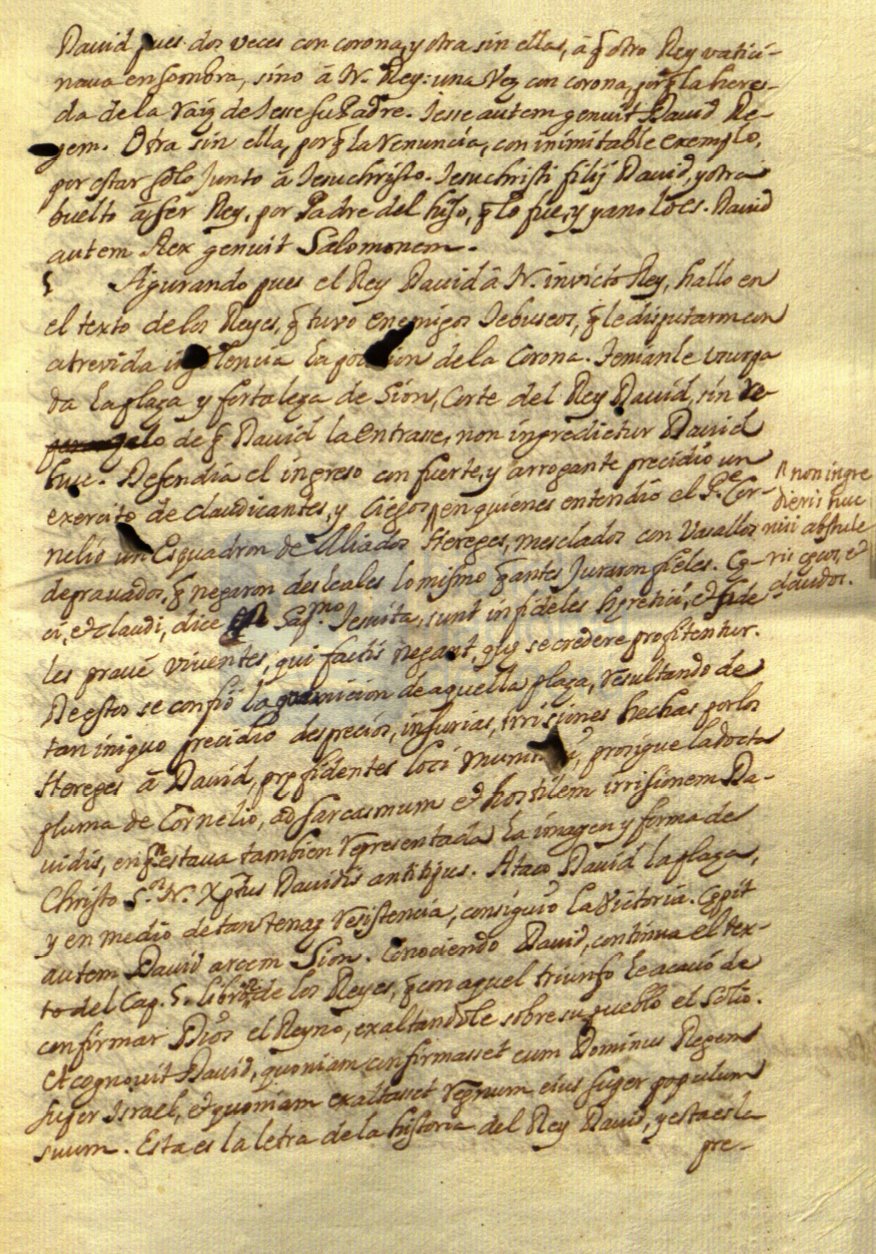 David pues dos veces con corona, y otra sin ella, â q̃ otro Rey vatici-
nava en sombra, sino â N. Rey: una vez con corona, porq̃ la here-
da de la raiz de Jesse su Padre. Jesse autem genuit David Re-
gem. Otra sin ella, porq̃ la renuncia, con inimitable exemplo,
por estar solo junto â Jesuchristo. Jesuchristi filij David, y otra
buelto â ser Rey, por Padre del hijo, q̃ lo fue, y ya no lo es. David
autem Rex genuit Salomonem.
5 Apurando pues el Rey David â N. invicto Rey, hallo en
el texto de los Reyes, q̃ tuvo enemigos Jebuseos, q̃ le disputaron con
atrevida insolencia la posesion de la Corona. Tenianle usurpa
da la plaza y fortaleza de Sion, Corte del Rey David, sin
de q̃ David la entrasse, non ingredietur David
huc. Defendia el ingreso con fuerte, y arrogante precidio un
exercito de claudicantes, y ciegos, ^ en quienes entendió el P.e Cor-
nelio un Esquadron de Aliados Hereges, mesclados con Vasallos
depravados, q̃ negaron desleales lo mismo q̃ antes juraron fieles. Cȩ-
ci, et claudi, dice Sap.mo Jesuita, sunt infideles hȩretici, et fide
les pravé viventes, qui factis negant, quȩ se credere profitentur.
De estos se confió la guarnicion de aquella plaza, resultando de
tan iniquo precidio desprecios, injurias, irrisiones hechas por los
Hereges â David, prȩfidentes loci prosigue la docta
pluma de Cornelio, ad sarcasmum et hostilem irrisionem Da-
vidis, en q.n estava tambien representada la imagen y forma de
Christo S.r N. Xp̃tus Davidis antitipus. Atacó David la plaza,
y en medio de tan tenaz resistencia, consiguió la victoria. Cȩpit
autem David arcem Sion. Conociendo David, continua el tex-
to del Cap. 5. libro de los Reyes, q̃ con aquel triunfo le acavó de
confirmar Dios el Reyno, exaltandole sobre su pueblo el solio.
Et cognovit David, quoniam confirmasset eum Dominus Regem
super Israel, et quoniam exaltasset regnum eius super populum
suum. Esta es la letra de la historia del Rey David, y esta es la
pre-
^ non ingre
dieris huc
nisi abstule
ris cȩcos, et
claudos.